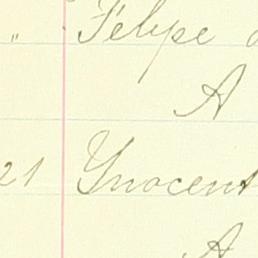 " Felipe
A
21 Ynocent
A